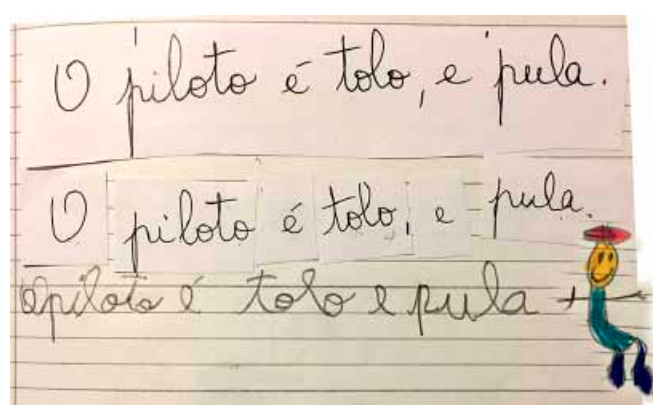 O piloto é tolo, e pula.
O piloto é tolo, e pula.
O piloto é tolo e pula